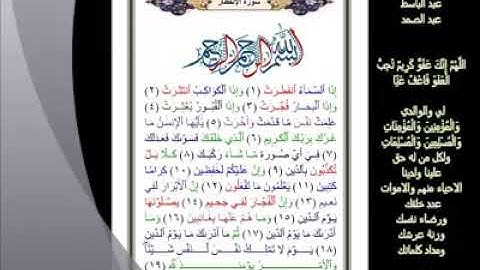 سورة الانفطار
بسم الله الرحمن الرحيم
إِذَا ٱلسَّمَآءُ ٱنفَطَرَتْ (١) وَإِذَا ٱلْكَوَاكِبُ ٱنتَثَرَتْ (٢)
وَإِذَا ٱلْبِحَارُ فُجِّرَتْ (٣) وَإِذَا ٱلْقُبُورُ بُعْثِرَتْ (٤)
عَلِمَتْ نَفْسٌ مَّا قَدَّمَتْ وَأَخَّرَتْ (٥) يَٰٓأَيُّهَا ٱلْإِنسَٰنُ مَا
غَرَّكَ بِرَبِّكَ ٱلْكَرِيمِ (٦) ٱلَّذِى خَلَقَكَ فَسَوَّىٰكَ فَعَدَلَكَ
(٧) فِىٓ أَىِّ صُورَةٍ مَّا شَآءَ رَكَّبَكَ (٨) كَلَّا بَلْ
تُكَذِّبُونَ بِٱلدِّينِ (٩) وَإِنَّ عَلَيْكُمْ لَحَٰفِظِينَ (١٠) كِرَامًا
كَٰتِبِينَ (١١) يَعْلَمُونَ مَا تَفْعَلُونَ (١٢) إِنَّ ٱلْأَبْرَارَ لَفِى
نَعِيمٍ (١٣) وَإِنَّ ٱلْفُجَّارَ لَفِى جَحِيمٍ (١٤) يَصْلَوْنَهَا
يَوْمَ ٱلدِّينِ (١٥) وَمَا هُمْ عَنْهَا بِغَآئِبِينَ (١٦) وَمَآ
أَدْرَىٰكَ مَا يَوْمُ ٱلدِّينِ (١٧) ثُمَّ مَآ أَدْرَىٰكَ مَا يَوْمُ ٱلدِّينِ
(١٨) يَوْمَ لَا تَمْلِكُ نَفْسٌ لِّنَفْسٍ شَيْـًٔا
وَٱلْأَمْرُ يَوْمَئِذٍ لِّلَّهِ (١٩)
عبد الباسط
عبد الصمد
اللَّهُمَّ إِنَّكَ عَفُوٌّ كَرِيمٌ تُحِبُّ
الْعَفْوَ فَاعْفُ عَنَّا
لي والوالدي
وَالْمُؤْمِنِينَ وَالْمُؤْمِنَاتِ
وَالْمُسْلِمِينَ وَالْمُسْلِمَاتِ
ولكل من له حق
علينا ولدينا
الاحياء منهم والاموات
عدد خلقك
ورضاء نفسك
وزنة عرشك
ومداد كلماتك